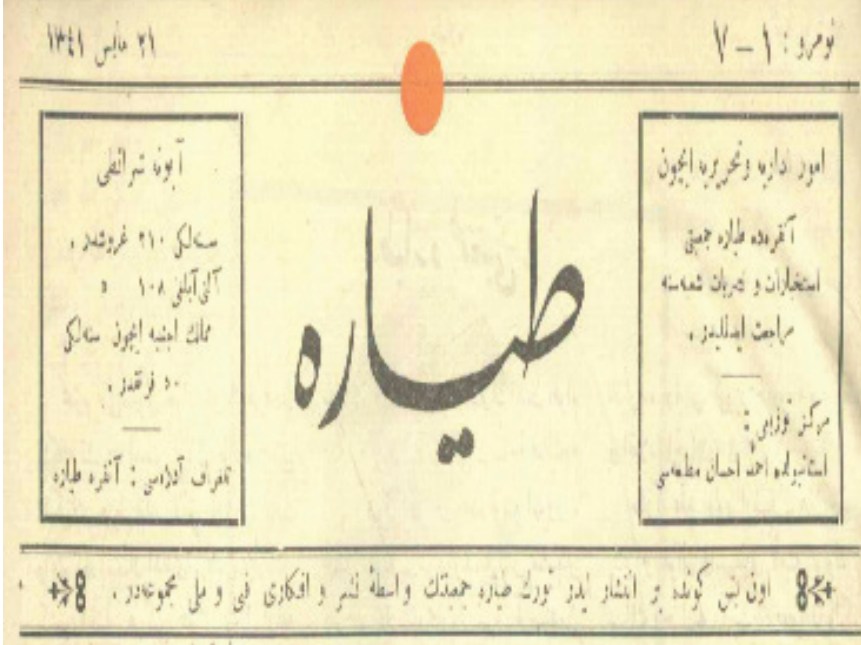 نومرو : ١ – ٧
٢١ مايس ١٣٤١
امور اداريه وتحريريه ايچون
آنقره‌ده طياره جمعيتى
استخبارات و نشريات شعبه‌سنه
مراجعت ايدلليدر .
مركز توزيعى :
استانبولده احمد احسان مطبعه‌سى
طياره
آبونه شرائطى
سنه‌لكى ٢١٠ غروشدر .
آلتى آيلغى ١٠٨ »
ممالك اجنبيه ايچون سنه‌لكى
٥٠ فرانقدر .
تلغراف آدره‌سى : آنقره طياره
اون بش كونده بر انتشار ايدر تورك طياره جمعيتنك واسطهٔ نشر و افكارى فنى و ملى مجموعه‌در .